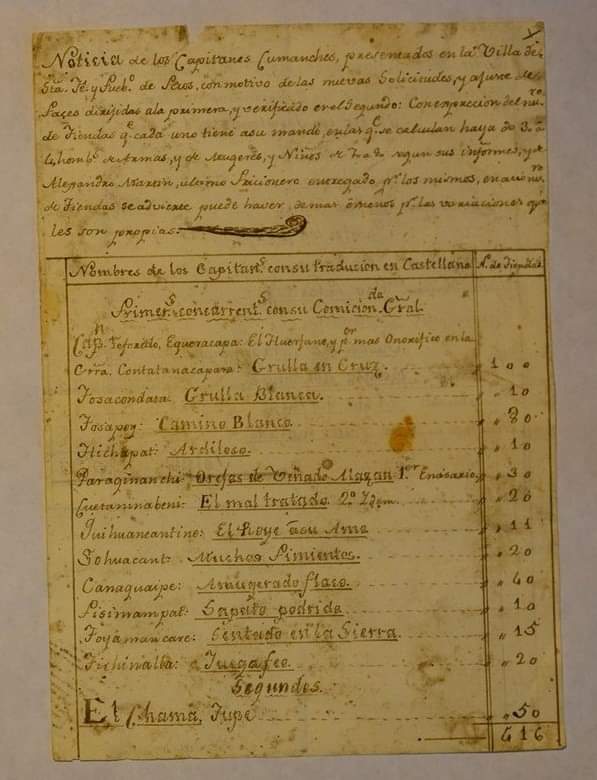 Noticia de los Capitanes Cumanches, presentados en la Villa de
Sta. Fe, y Pueb.o de Taos, con motivo de las nuevas Solicitudes, y ajuste de
Pazes dirijidas ala primera, y verificado en el Segundo: Con exprecion del nu.ro
de Tiendas q.e cada uno tiene asu mando, en las q.e se calculan haya de 3. â
4, homb.s de Armas, y de Mugeres, y Niños segun sus informes, y de
Alejandro Martin, ultimo Pricionero entregado p.r los mismos,
de Tiendas se advierte puede haver demas ô menos p.r las variaciones q.e
les son propias.
Nombres de los Capitan.s con su traducion en Castellano N.o de Tiendas
Primer.s concurrent.s con su Comicion.da Gral.
Cap.n Eqveracapa: El Huerfano, y p.or mas Onorifico en la
Grra. Contatanacapara: Grulla en Cruz. 100
Tosacondata: Grulla Blanca. 10
Tosapoy: Camino Blanco. 80
Hichapat: Ardiloso. 10
Paraginanchi: Orejas de Venado Alazan 1.er Enviado 30
Cuetaninabeni: El mal tratado. 2.o Idem. 20
Quihuaneantino: El Roye âsu Amo 11
Sohuacant: Muchos Pimientos. 20
Canaguaipe: Amugerado flaco. 40
Pisimampat: Sapato podrido 10
Toyamancare: Sentado en la Sierra. 15
Tichinalla: Juega feo. 20
Segundos.
El Chama, Tupe 50
416